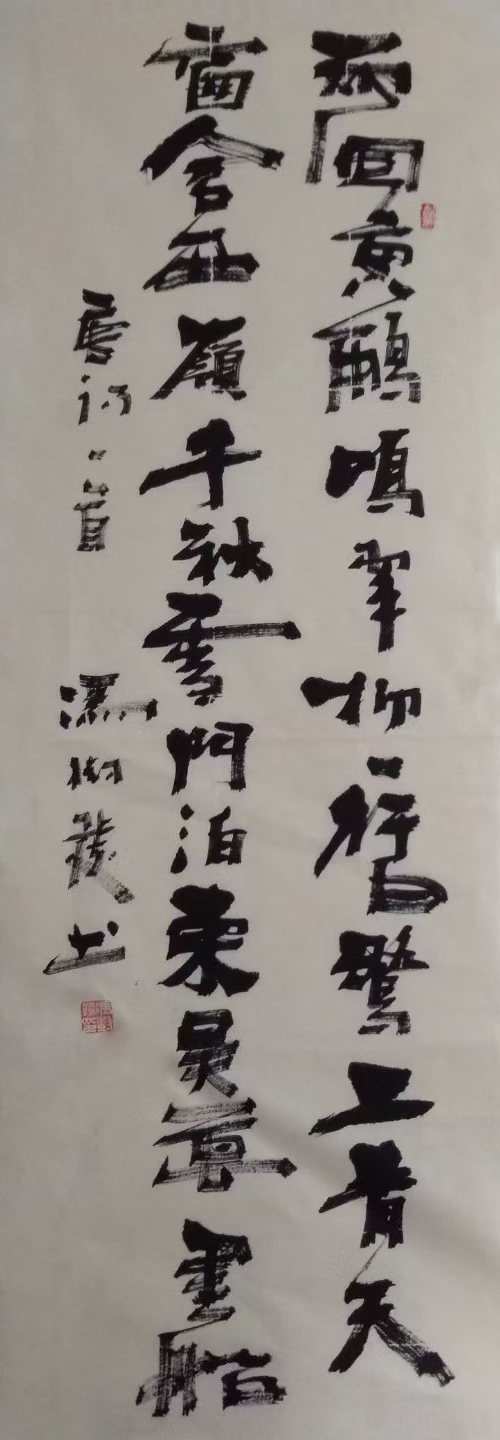 兩個黃鸝鳴翠柳一行白鷺上青天
窗含西嶺千秋雪門泊東吳萬里船
唐詩一首 馮樹书